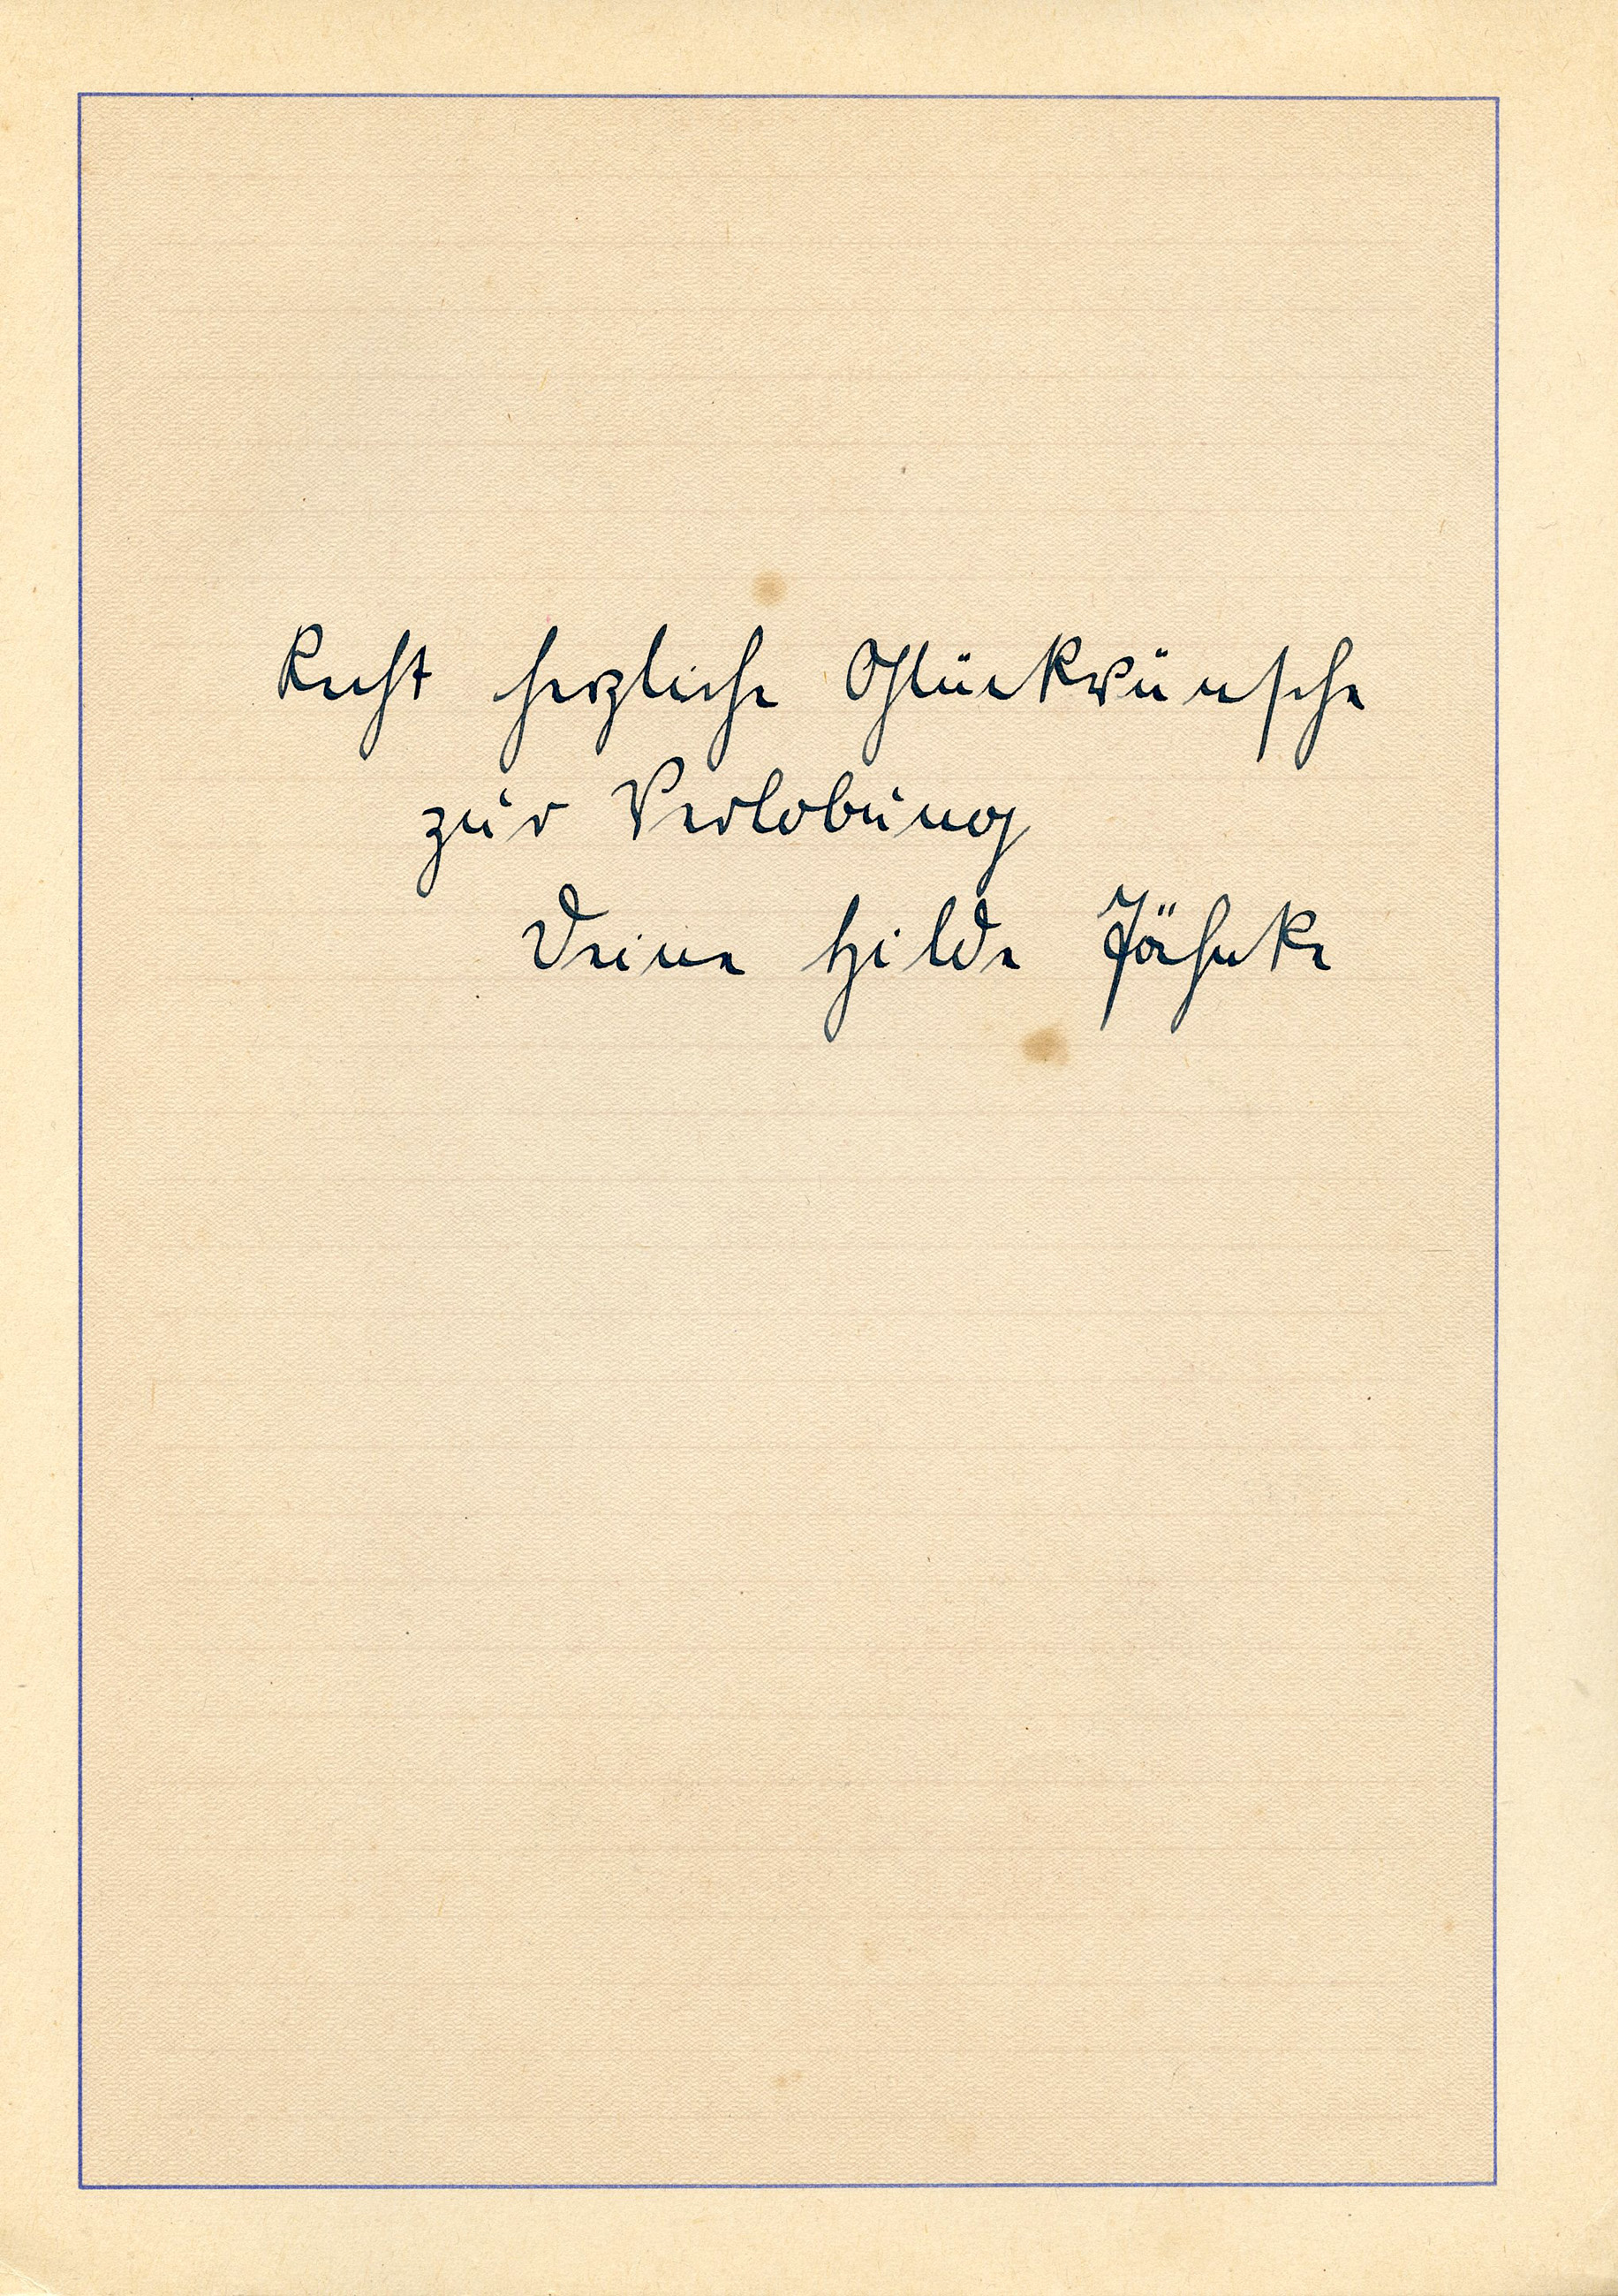 Recht herzliche Glückwünsche
zur Verlobung
Deine Hilde Jähnke